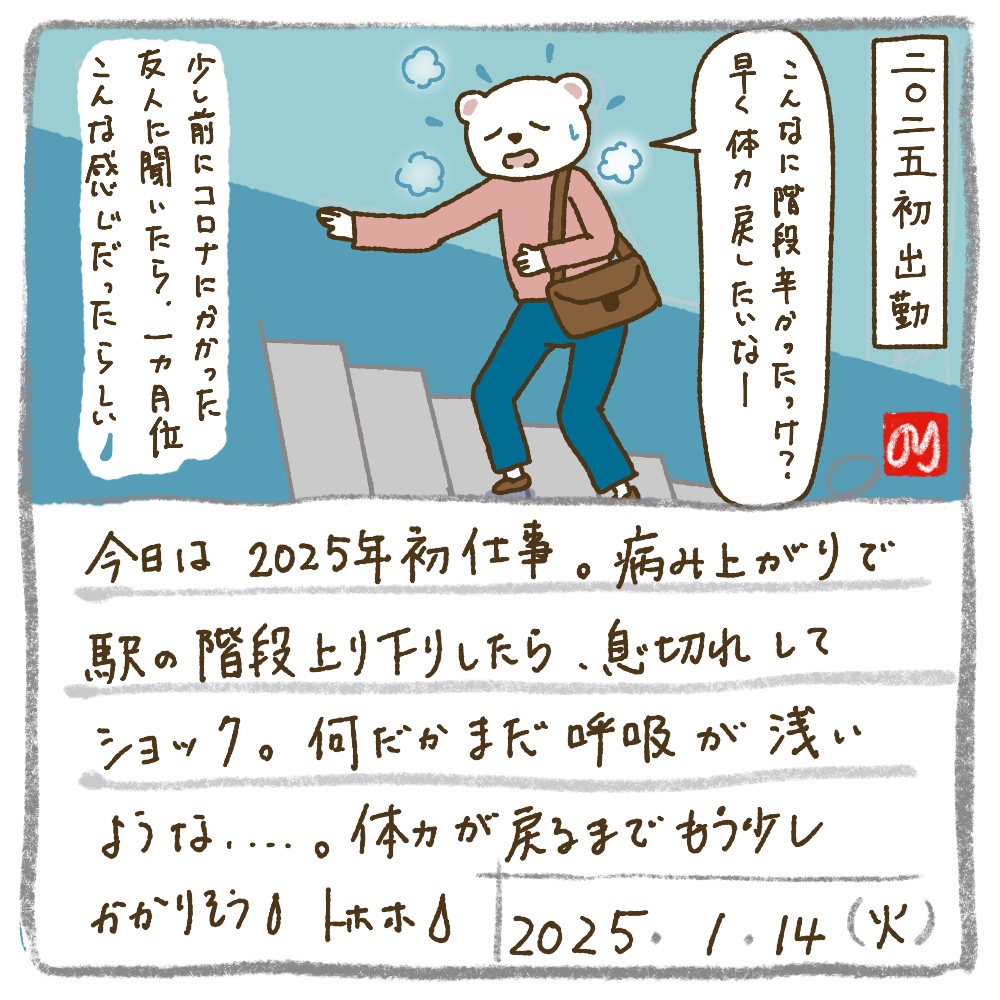 二〇二五初出勤
こんなに階段辛かったっけ?
早く体力戻したいなー
少し前にコロナにかかった
友人に聞いたら、一カ月位
こんな感じだったらしい
今日は 2025年初仕事。病み上がりで
駅の階段上り下りしたら、息切れして
ショック。何だかまだ呼吸が浅い
ような....。体力が戻るまでもう少し
かかりそう トホホ
2025.1.14(火)